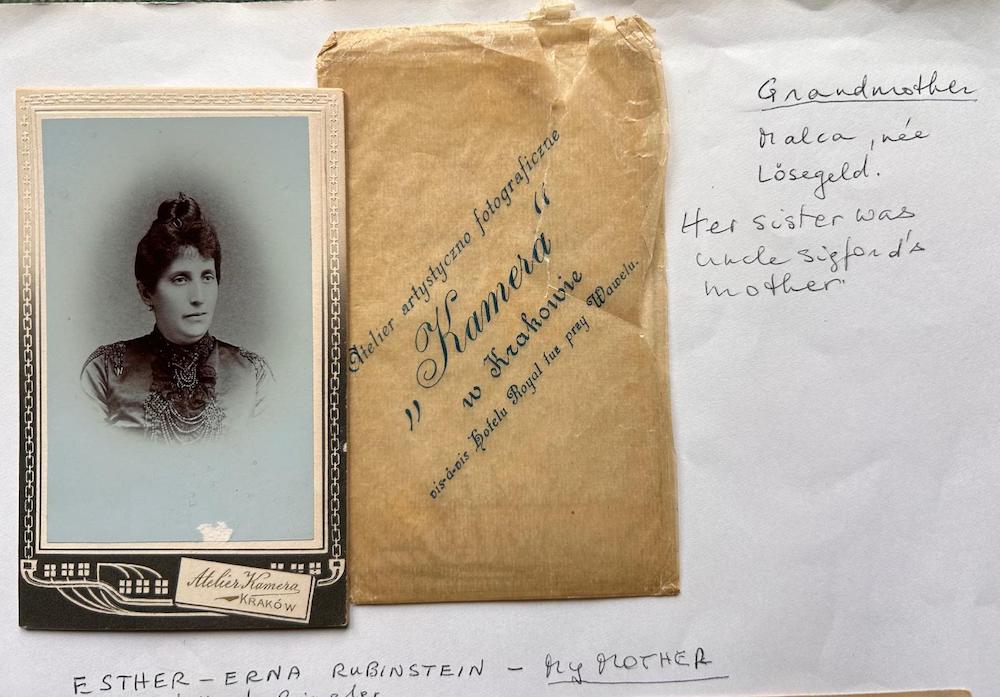 Grandmother
Malca, née
Lösegeld.
Her sister was
uncle Sigford's
mother.
Atelier artystyczno fotograficzne
„Kamera“
w Krakowie
vis-à-vis Hotelu Royal tuż przy Wawelu.
Atelier Kamera
KRAKÓW
ESTHER - ERNA RUBINSTEIN - MY MOTHER